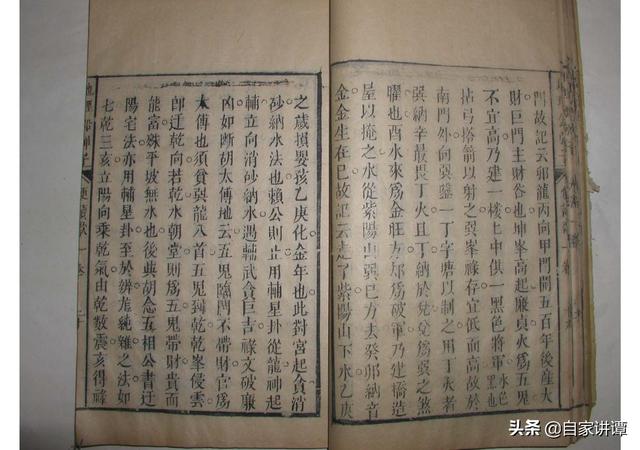 門故記云卯龍丙向甲門開五百年後產大
財巨門主財谷也坤峯高起廉貞火爲五鬼
不宜高乃建一樓上中供一黑色將軍
拈弓搭箭以射之巽峯祿存宜低而高故於
南門外向巽鑿一丁字塘以制之用丁火者
巽納辛最畏丁火且丁納於兌兌爲巽之煞
曜也酉水來爲金旺方邪爲破軍乃建橋造
屋以掩之水從紫陽山巽巳方去癸卯納音
金金生在巳故記云走了紫陽山下水乙庚
之歲損嬰孩乙庚化金年也此對宮起貪消
砂納水法也賴公則止用輔星卦從龍神起
輔立向消砂納水遇輔武貪巨吉祿文破廉
凶如斷胡太傅地云五鬼臨門不帶財官爲
太傅也須貧巽龍入首五鬼到乾乾峯侵雲
郎迂乾向若乾水朝堂則爲五鬼帶財貴而
能富殊平坡無水也後與胡念五相公書迂
陽宅法亦用輔星卦至於辨龍純雜之法如
七乾三亥立陽向乘乾氣由乾數震亥得祿
頭条 @自家讲谭